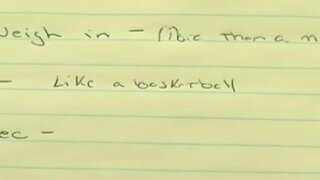 weigh in - like then a m
- Like a basketball
ec -